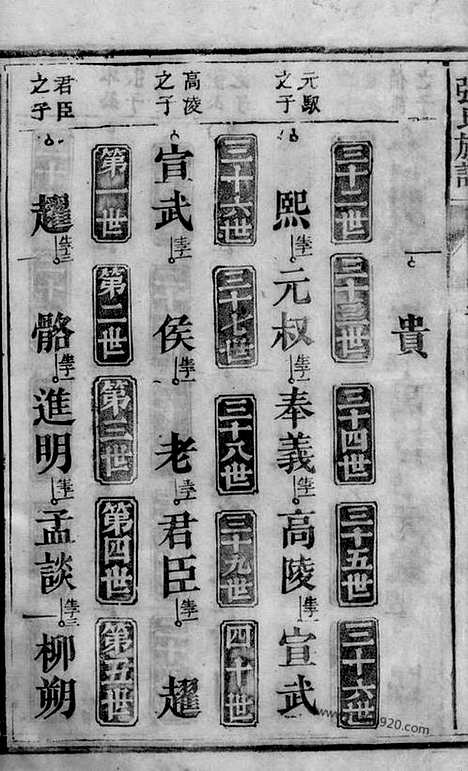 張氏族譜
貴
三十二世 三十三世 三十四世 三十五世 三十六世
元馭之子
熙 元叔 奉義 高陵 宣武
三十六世 三十七世 三十八世 三十九世 四十世
高陵之子
宣武 侯 老 君臣 趯
第一世 第二世 第三世 第四世 第五世
君臣之子
趯 骼 進明 孟談 柳朔